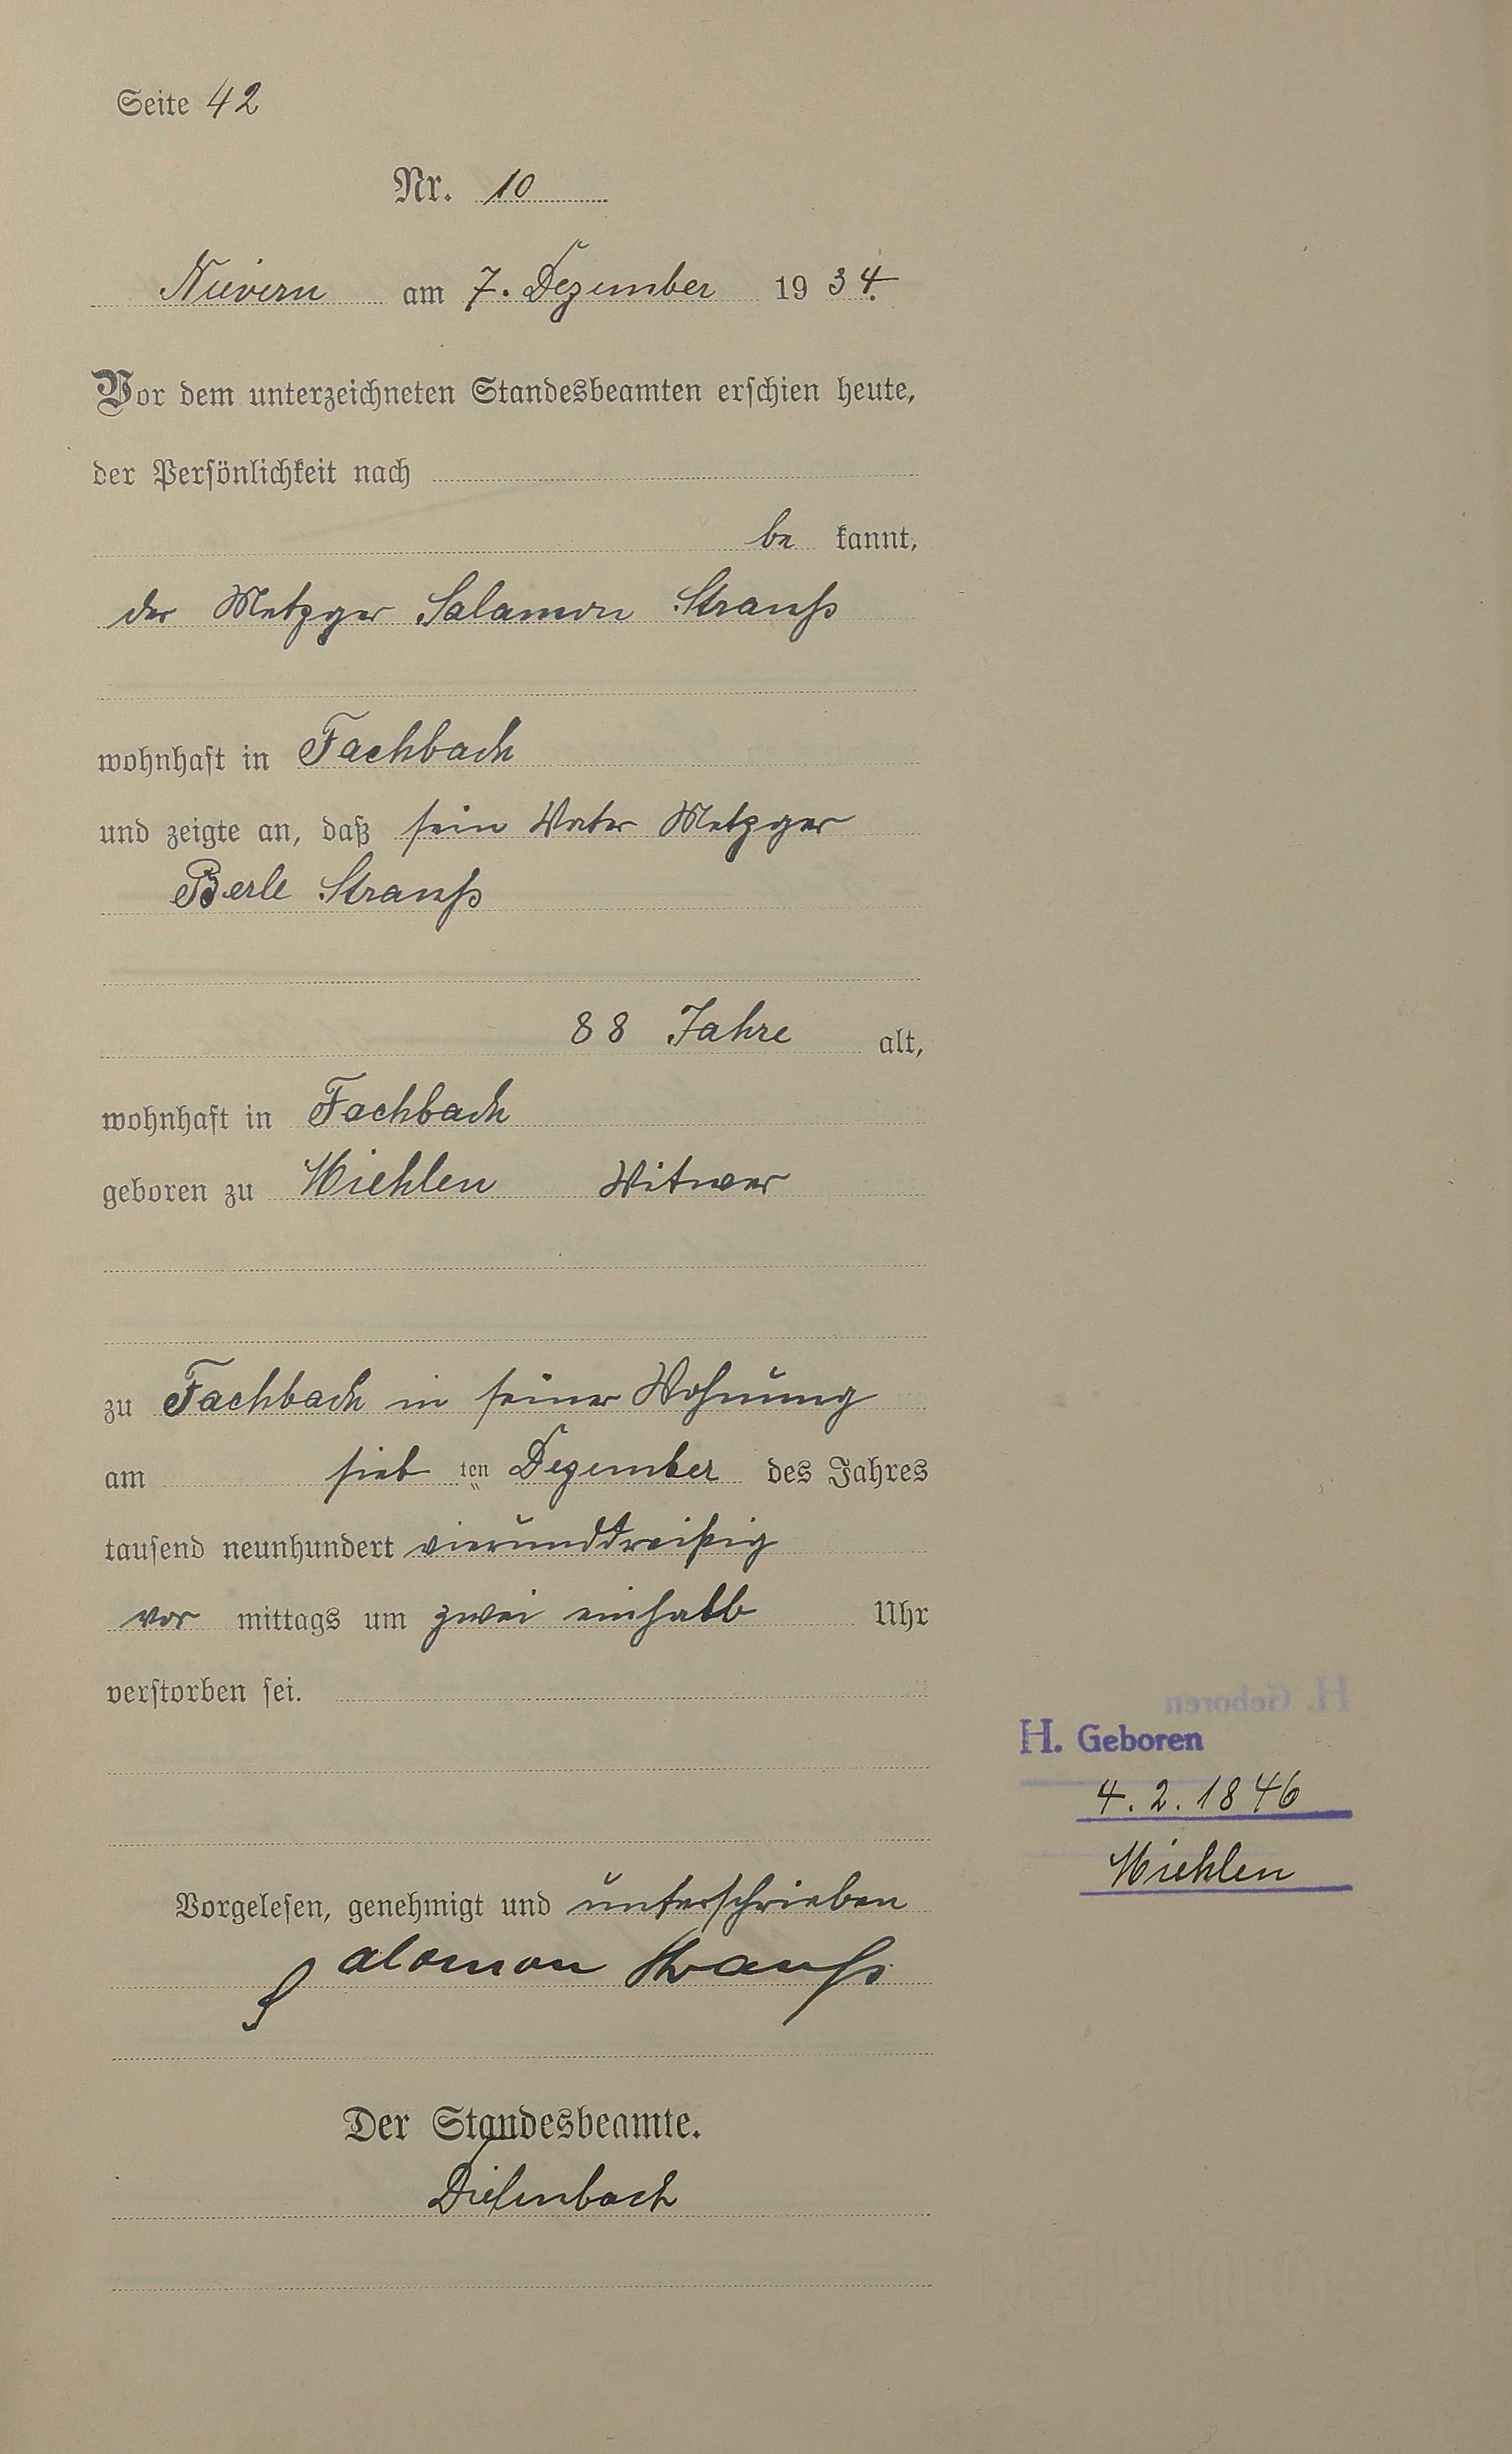 Seite 42
Nr. 10
Nievern am 7. Dezember 1934.
Vor dem unterzeichneten Standesbeamten erschien heute,
der Persönlichkeit nach
be kannt,
der Metzger Salamon Strauß
wohnhaft in Fachbach
und zeigte an, daß sein Vater Metzger
Berle Strauß
88 Jahre alt,
wohnhaft in Fachbach
geboren zu Miehlen Witwer
zu Fachbach in seiner Wohnung
am sieb ten Dezember des Jahres
tausend neunhundert vierunddreißig
vor mittags um zwei einhalb Uhr
verstorben sei.
H. Geboren
4. 2. 1846
Miehlen
Vorgelesen, genehmigt und unterschrieben
Salomon Strauß
Der Standesbeamte.
Diefenbach